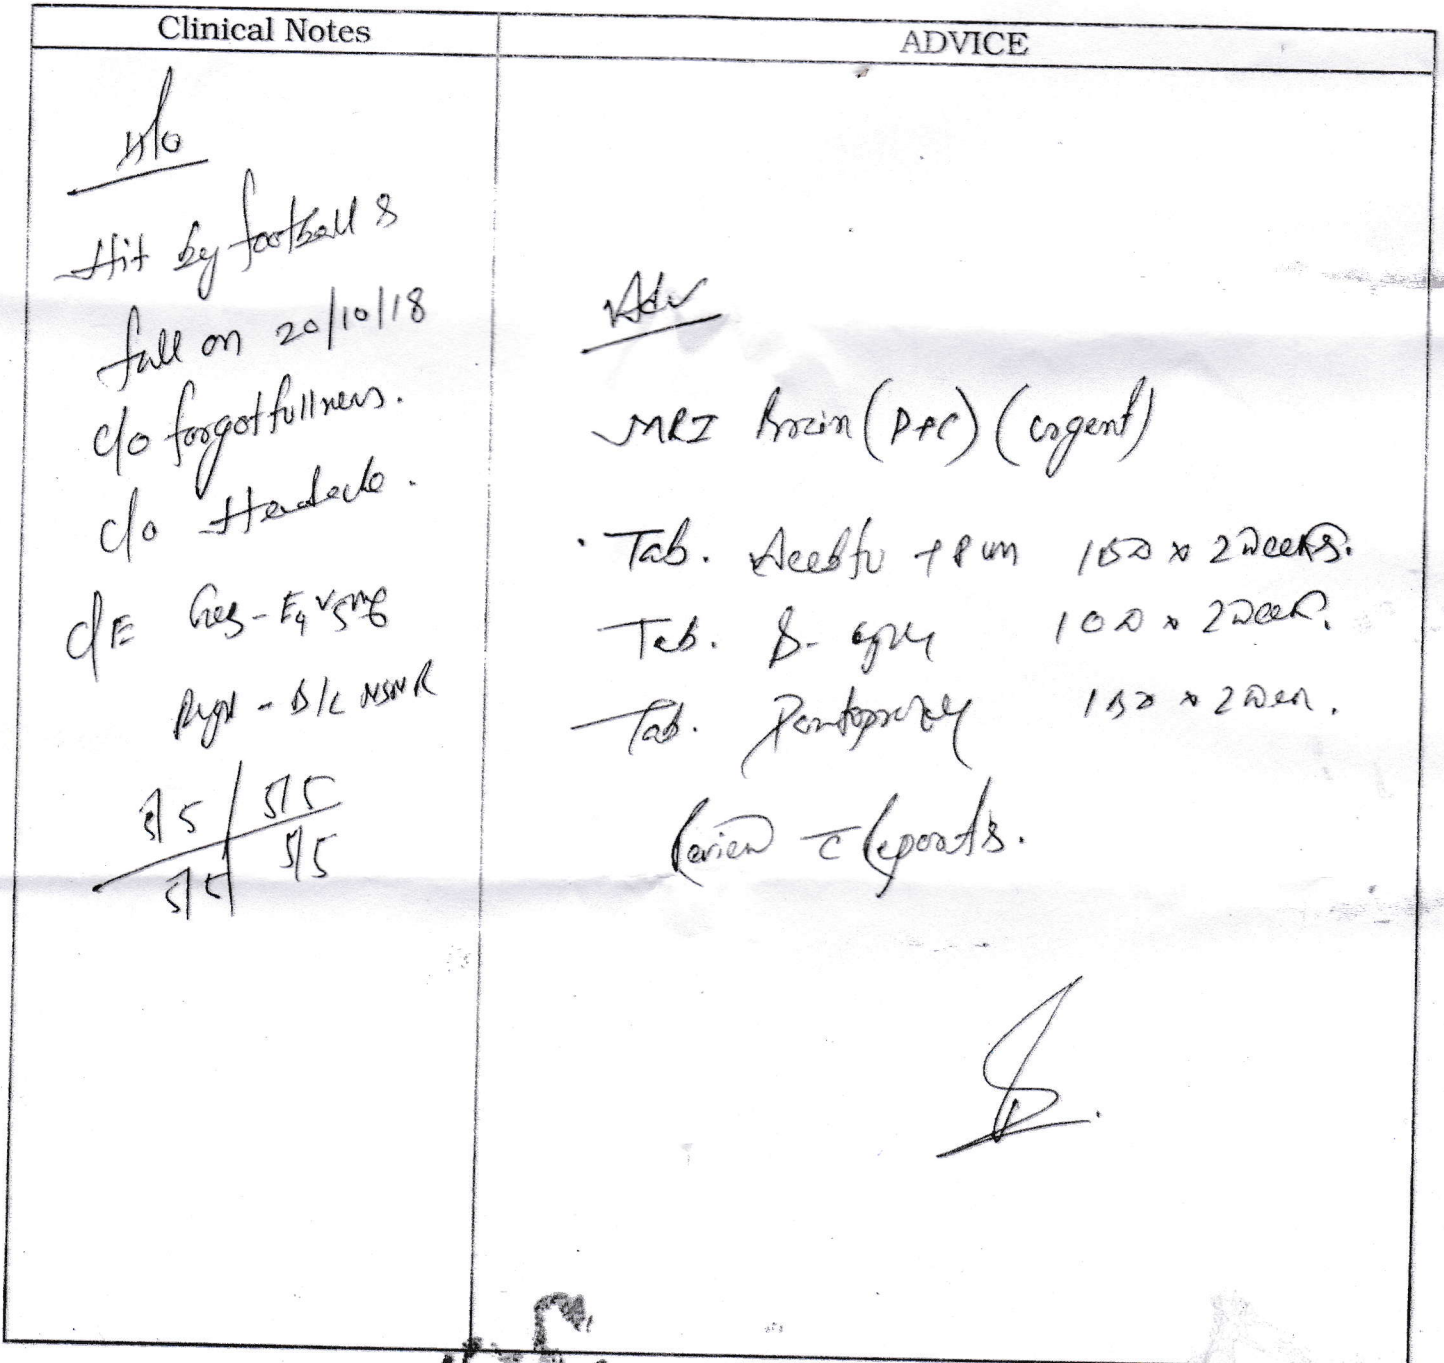 Clinical Notes
ADVICE
H/o
Hit by football &
fall on 20/10/18
c/o forgotfullness.
c/o Headache.
O/E GCS - E4 V5 M6
Pupil - B/L NSNR
5/5 | 5/5
5/5 | 5/5
Adv
MRI Brain (P+C) (urgent)
Tab. 1BD x 2 weeks.
Tab. 1OD x 2 week.
Tab. 1BD x 2 week.
Review c Reports.